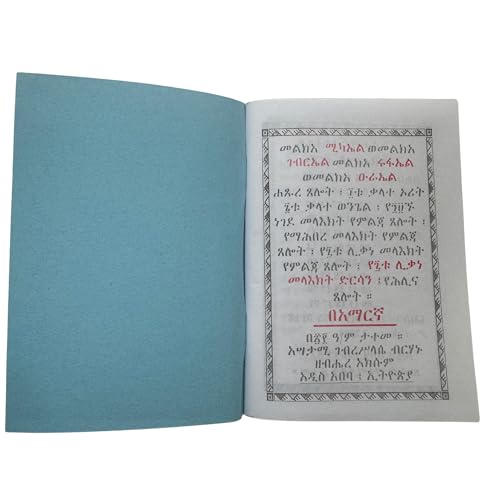 መልክአ ሚካኤል ወመልክአ
ገብርኤል መልክአ ሩፋኤል
ወመልክአ ዑራኤል
ሐጹረ ጸሎት ፤ ፲ቱ ቃላተ ኦሪት
፮ቱ ቃላተ ወንጌል ፤ የ፺፱ኙ
ነገደ መላእክት የምልጃ ጸሎት ፤
የማሕበረ መላእክት የምልጃ
ጸሎት ፤ የ፯ቱ ሊቃነ መላእክት
የምልጃ ጸሎት ፤ የ፯ቱ ሊቃነ
መላእክት ድርሳን ፤ የሕሊና
ጸሎት ።
በአማርኛ
ዓ/ም ታተመ ።
አሣታሚ ገብረሥላሴ ብርሃኑ
ዘብሔረ አክሱም
አዲስ አበባ ፤ ኢትዮጵያ